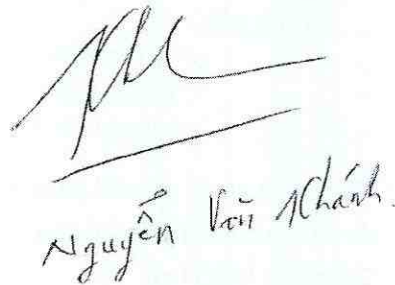 Nguyễn Văn Khánh.